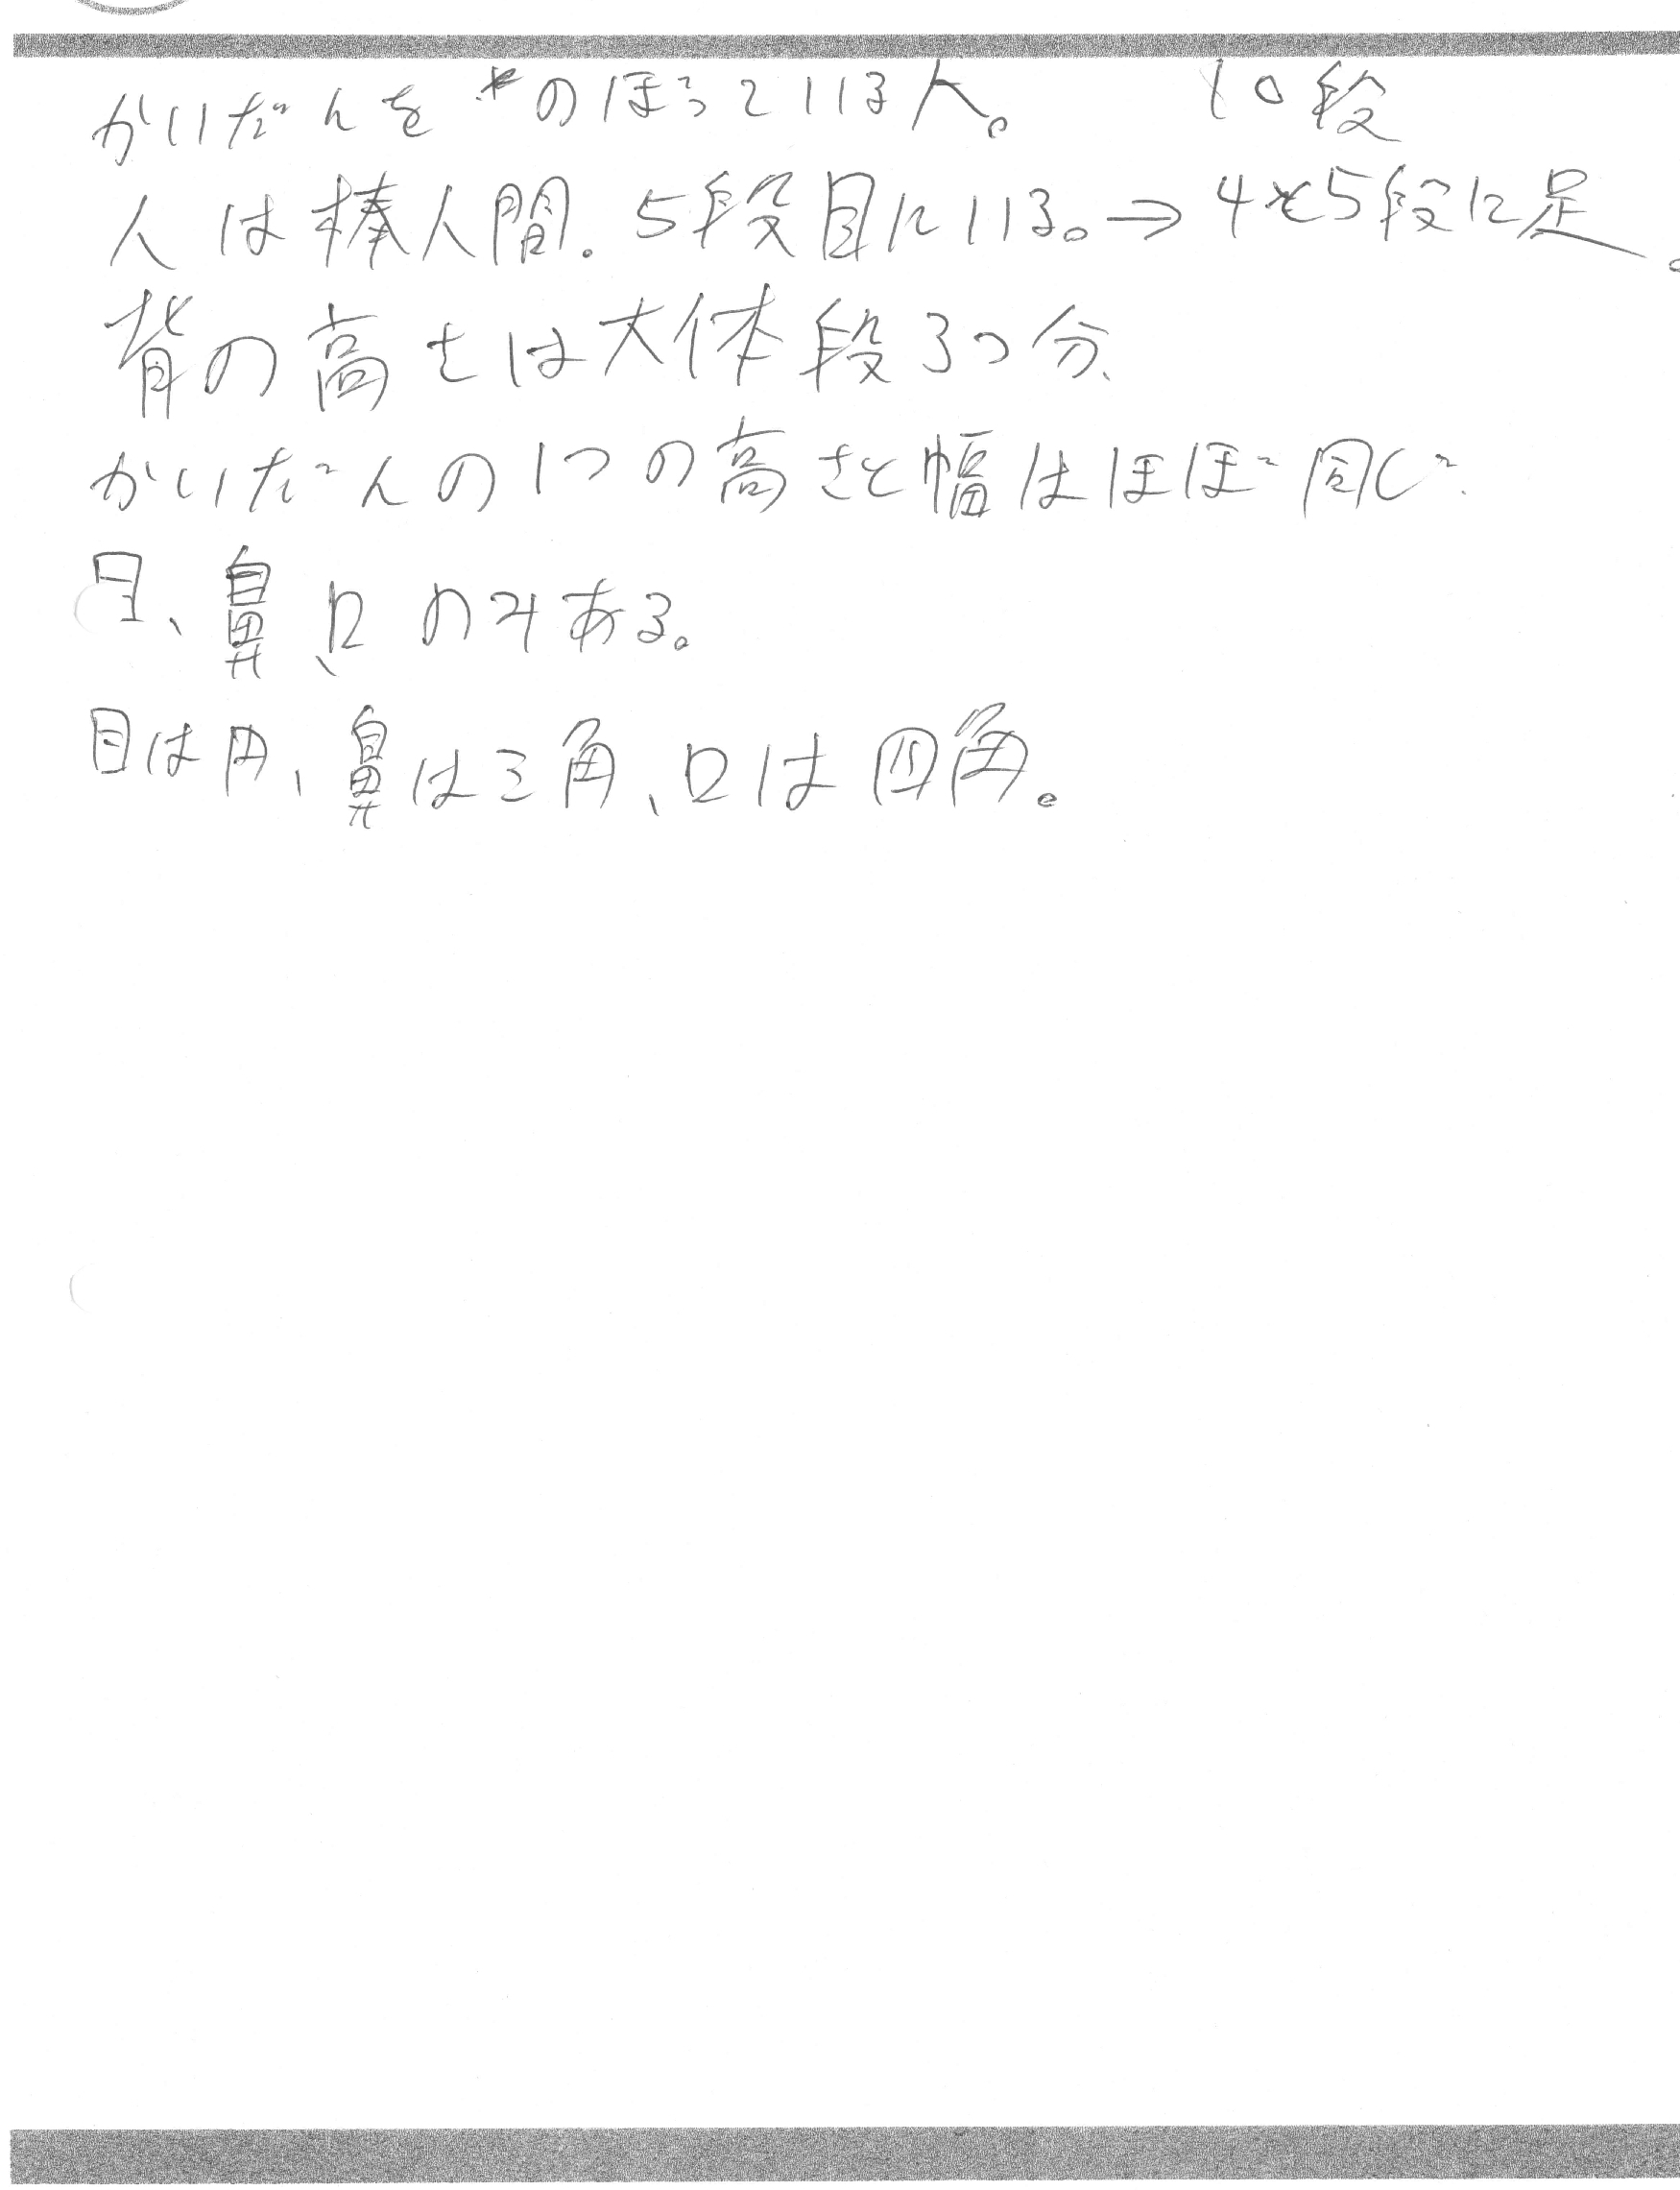 かいだんをのぼっている人。 10段
人は棒人間.5段目にいる。→4と5段に足。
背の高さは大体段3つ分、
かいだんの1つの高さと幅はほぼ同じ.
目、鼻、口のみある。
目は円、鼻は三角、口は四角。